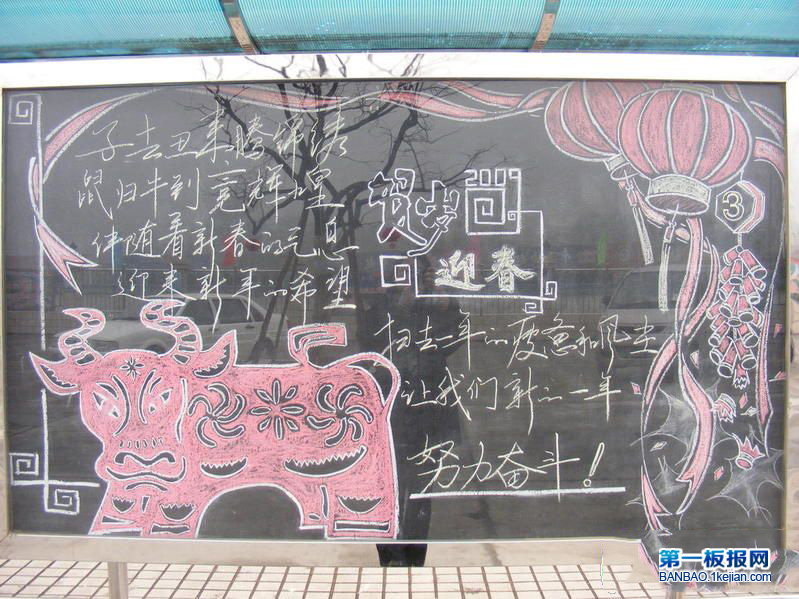 子去丑来腾锦绣
鼠归牛到竞辉煌
伴随着新春的气息
迎来新年的希望
贺岁
迎春
3
扫去一年的疲惫和风尘
让我们新的一年
努力奋斗!
第一板报网
BANBAO.1kejian.com